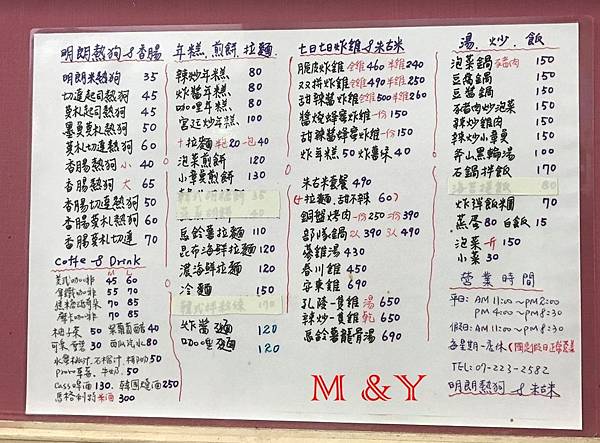 明朗熱狗 & 香腸
明朗米熱狗 35
切達起司熱狗 45
莫札起司熱狗 45
墨莫札熱狗 50
莫札切達熱狗 60
香腸熱狗 小 40
香腸熱狗 大 65
香腸切達熱狗 50
香腸莫札熱狗 60
香腸莫札切達 70
Coffe & Drink
M L
美式咖啡 45 60
拿鐵咖啡 55 70
焦糖瑪奇朵 70 85
摩卡咖啡 70 85
柚子茶 50
紫葡萄醋 40
可樂 雪碧 30
西瓜汽水 80
水蜜桃汁、石榴汁、
Cass啤酒 130、韓國燒酒 250
馬格利特米酒 300
年糕、煎餅、拉麵
辣炒年糕 80
炸醬年糕 80
咖哩年糕 80
宮廷炒年糕 100
+拉麵一包20 一包40
泡菜煎餅 120
小章魚煎餅 130
馬鈴薯拉麵 110
昆布海鮮拉麵 120
濃海鮮拉麵 120
冷麵 150
炸醬麵 120
咖哩麵 120
七日七日炸雞 & 朱古米
脆皮炸雞 全雞460 半雞240
双拼炸雞 全雞490 半雞250
甜辣醬炸雞 全雞500 半雞260
醬燒蜂蜜炸雞 一份150
甜辣醬蜂蜜炸雞 一份150
炸年糕 50 炸薯條 40
朱古米套餐 490
(+拉麵、甜不辣 60)
銅盤烤肉 一份250 二份390
部隊鍋 2人390 3人490
蔘雞湯 430
春川雞 450
安東雞 690
孔陵一隻雞 湯 650
辣炒一隻雞 乾 650
馬鈴薯龍骨湯 690
M & Y
湯、炒、飯
泡菜鍋 豬肉 150
豆腐鍋 150
豆醬鍋 150
豬肉炒泡菜 150
辣炒雞肉 150
辣炒小章魚 150
斧山黑輪湯 100
石鍋拌飯 150
炸彈飯糰 70
蒸蛋 80 白飯 15
泡菜 一斤 150
小菜 30
營業時間
平日: AM 11:00 ~ PM 2:00
PM 4:00 ~ PM 8:30
假日: AM 11:00 ~ PM 8:30
每星期一店休
TEL: 07-223-2582
明朗熱狗 & 朱古米